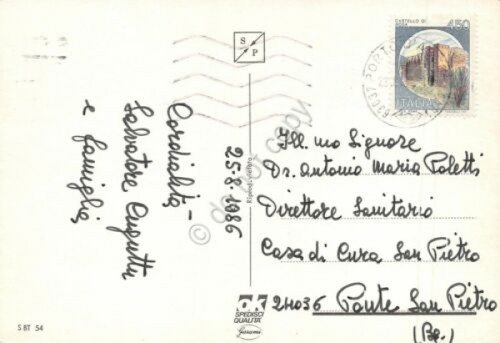 CASTELLO DI
450
ITALIA
63037 PORTO
S
P
Cordialità
Salvatore
e famiglia
25-8-1986
Riprod. vietata
Ill. mo Signore
Dr. Antonio Maria Poletti
Direttore Sanitario
Casa di Cura San Pietro
24036 Ponte San Pietro
(Bg.)
OK
SPEDISCI
QUALITA'
S BT 54
do not copy